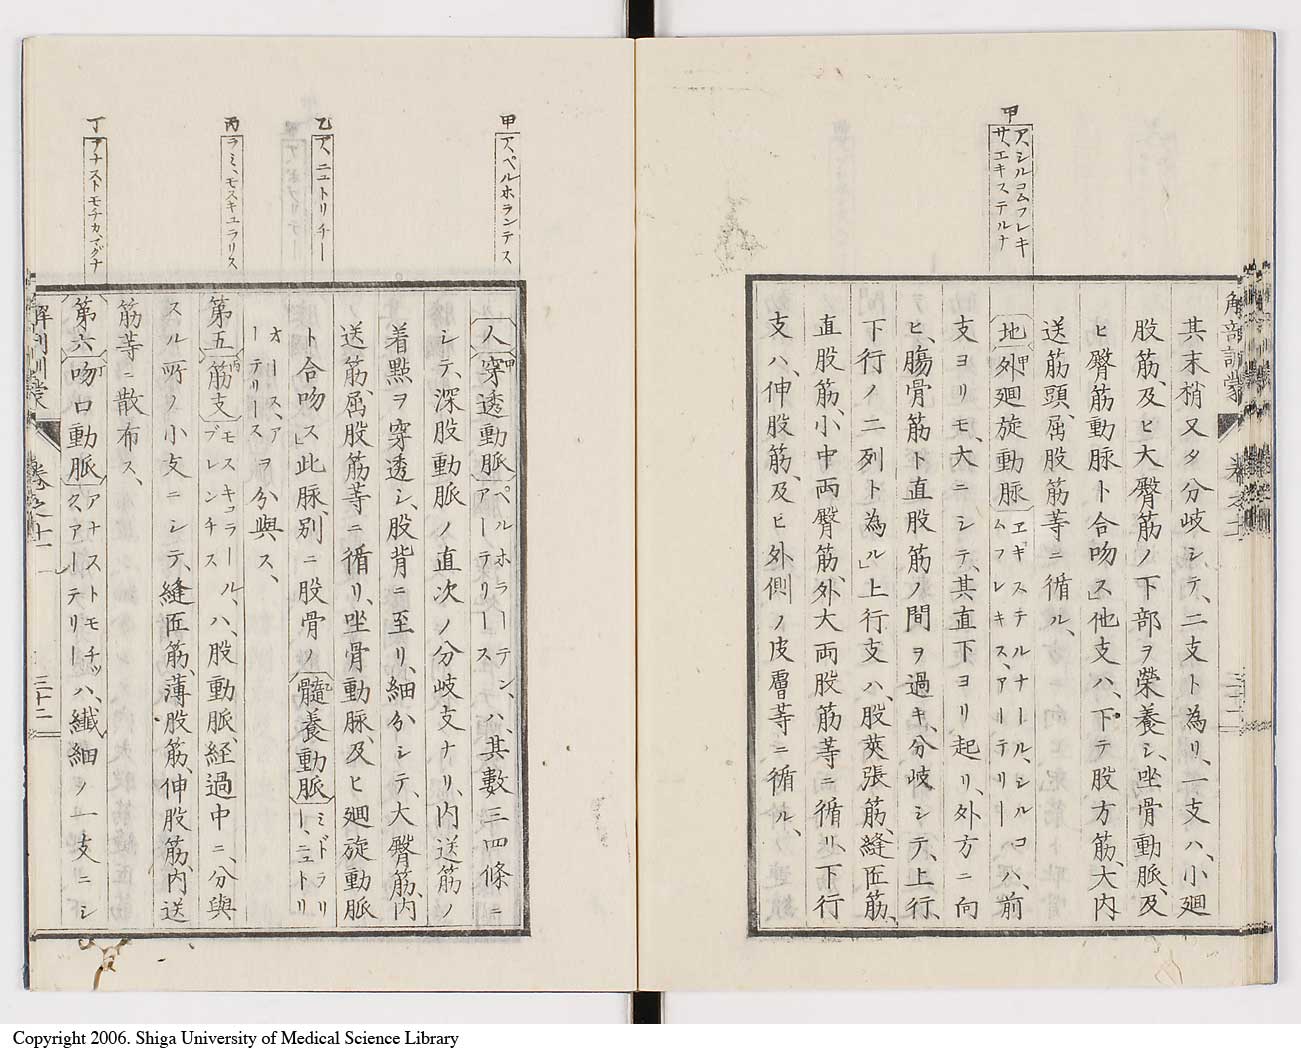 甲
ア、シルコムフレキ
サ、エキステルナ
其末梢又タ分岐シ、テ、二支ト為リ、一支ハ、小廻
股筋、及ヒ大臀筋ノ下部ヲ榮養シ、坐骨動脈、及
ヒ臀筋動脉ト合吻ス」他支ハ、下テ股方筋、大内
送筋頭、屈股筋等ニ循ル、
地 甲外廻旋動脉 ヱキステルナール、シルコ
ムフレキス、アーテリー ハ、前
支ヨリモ、大ニシテ、其直下ヨリ起リ、外方ニ向
ヒ、膓骨筋ト直股筋ノ間ヲ過キ、分岐シテ、上行、
下行ノ二列ト為ル」上行支ハ、股莢張筋、縫匠筋、
直股筋、小中両臀筋、外大両股筋等ニ循リ、下行
支ハ、伸股筋、及ヒ外側ノ皮膚等ニ循ル、
解剖訓蒙 卷之十一 三十二
甲
ア、ペルホランテス
乙
ア、ニュトリチー
丙
ラミ、モスキュラリス
丁
アナストモチカ、マグナ
人 甲穿透動脈 ペルホラーテン、
アーテリース ハ、其數三四條ニ
シテ、深股動脈ノ直次ノ分岐支ナリ、内送筋ノ
着點ヲ穿透シ、股背ニ至リ、細分シテ、大臀筋、内
送筋、屈股筋等ニ循リ、坐骨動脉、及ヒ廻旋動脈
ト合吻ス」此脉、別ニ股骨ノ 乙髓養動脈 ミドラリ
ー、ニュトリ
オース、ア
ーテリース ヲ分與ス、
第五 丙筋支 モスキュラール、
ブレンチス ハ、股動脈、経過中ニ、分與
スル所ノ小支ニシテ、縫匠筋、薄股筋、伸股筋、内送
筋等ニ散布ス、
第六 丁吻口動脈 アナストモチッ
ク、アーテリー ハ、纖細ノ一支ニシ
解剖訓蒙 卷之十一 三十二
Copyright 2006. Shiga University of Medical Science Library